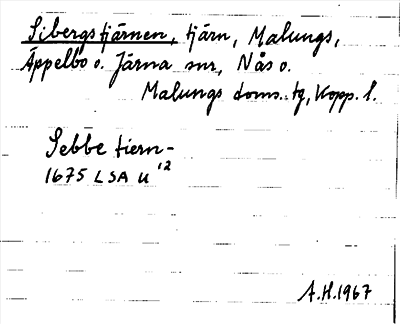 Sibergstjärnen, tjärn, Malungs,
Äppelbo o. Järna snr, Nås o.
Malungs doms.tg, Kopp. l.
Sebbe tiern-
1675 LSA U 12
A.H.1967